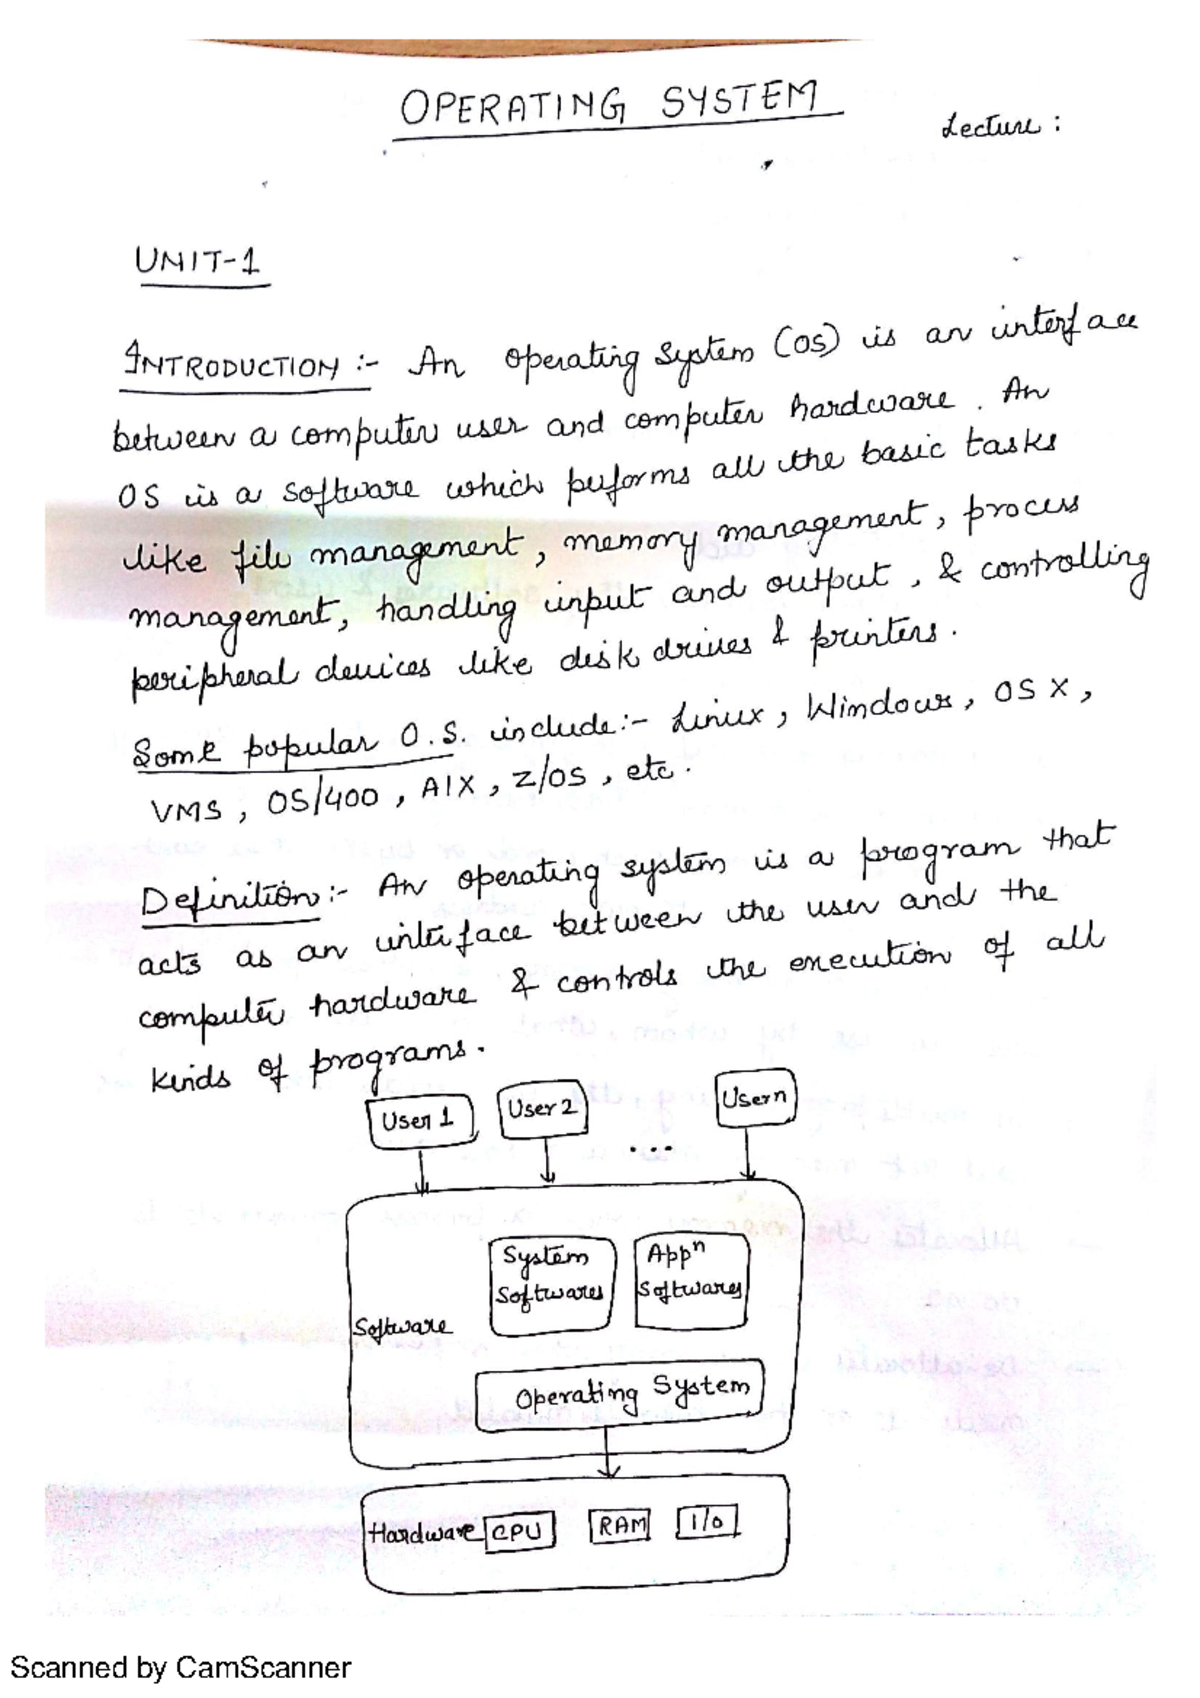 OPERATING SYSTEM
Lecture :
UNIT-1
INTRODUCTION :- An operating system (OS) is an interface
between a computer user and computer hardware. An
OS is a software which performs all the basic tasks
like file management, memory management, process
management, handling input and output, & controlling
peripheral devices like disk drives & printers.
Some popular O.S. include:- Linux, Windows, OS X,
VMS, OS/400, AIX, z/OS, etc.
Definition:- An operating system is a program that
acts as an interface between the user and the
computer hardware & controls the execution of all
kinds of programs.
User 1 User 2 ... User n
System Appⁿ
Softwares Softwares
Software
Operating System
Hardware CPU RAM I/O
Scanned by CamScanner